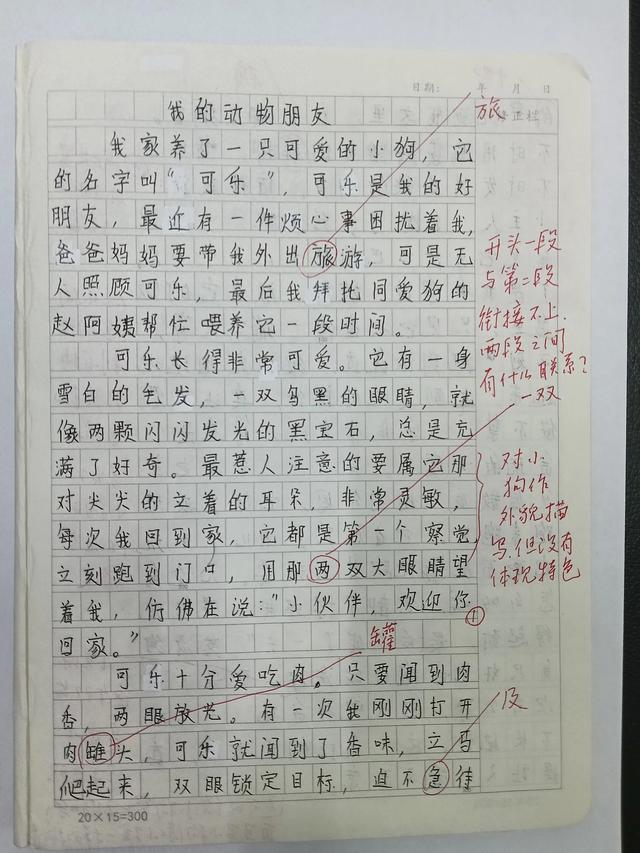 日期： 年 月 日
旅
正栏
我的动物朋友
我家养了一只可爱的小狗，它
的名字叫“可乐”，可乐是我的好
朋友，最近有一件烦心事困扰着我，
爸爸妈妈要带我外出旅游，可是无
人照顾可乐，最后我拜托同爱狗的
赵阿姨帮忙喂养它一段时间。
可乐长得非常可爱。它有一身
雪白的毛发，一双乌黑的眼睛，就
像两颗闪闪发光的黑宝石，总是充
满了好奇。最惹人注意的要属它那
对尖尖的立着的耳朵，非常灵敏，
每次我回到家，它都是第一个察觉，
立刻跑到门口，用那两双大眼睛望
着我，仿佛在说：“小伙伴，欢迎你
回家。”
可乐十分爱吃肉。只要闻到肉
香，两眼放光。有一次我刚刚打开
肉头，可乐就闻到了香味，立马
爬起来，双眼锁定目标，迫不急待
开头一段
与第二段
衔接不上.
两段之间
有什么联系？
一双
对小
狗作
外貌描
写，但没有
体现特色
①
罐
及
20×15=300